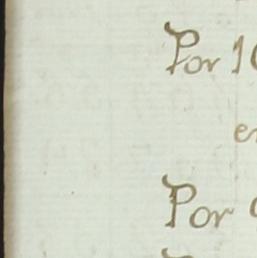 Por 1
e
Por